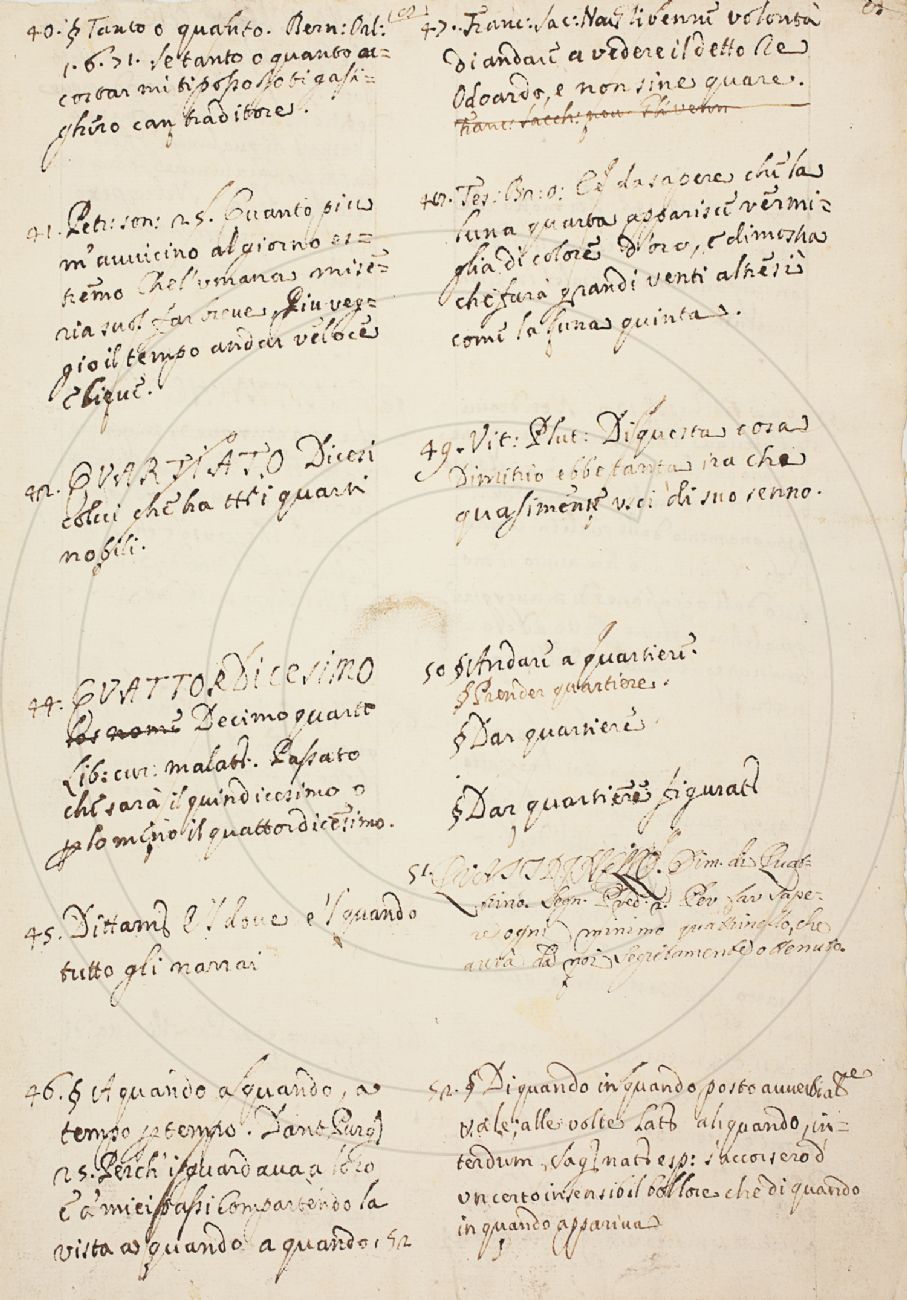 40. § Tanto o quanto. Bern: Orl:
1. 6. 31. Se tanto o quanto ac=
costar mi ti posso
ghero can traditore.
41. Petr: son: 25. Quanto piu
m'auuicino al giorno es=
tremo Che l'umana mise=
ria suol far breue, Piu veg=
gio il tempo andar veloce
e lieue.
42. QVARTIATO Dicesi
colui che ha tti i quarti
nobili.
44. QVATTORDICESIMO
Decimoquarto
Lib: cur: malatt. Passato
che sarà il quindicesimo o
p lo meno il quattordicesimo.
45. Dittam E'l doue e'l quando
tutto gli narrai
46. § A quando a quando, a
tempo p tempo. Dant Purg
25. Perch'i guardaua a loro
E a' miei passi Compartendo la
vista a quando a quando. 52
47. Franc: Sac: Nou li venne volontà
di andare a vedere il detto Re
Odoardo, e non sine quare.
48. Tes: Br: E da sapere che la
luna quarta apparisce vermi=
glia di colore d'oro, e dimostra
che farà grandi venti altresì
come la luna quinta.
49. Vit: Plut: Di questa cosa
Dimitrio ebbe tanta ira che
quasimente uscì di suo senno.
50 § Andare a quartiere.
§ Prender quartiere.
§ Dar quartiere
§ Dar quartiere figurat
51. Dim. di Quat-
trino. Segn. Pred. 2. Per far sape-
re ogni minimo quattrinello, che
avrà da noi segretamente ottenuto.
52. § Di quando in quando posto auuerbialte
vale, alle volte Lat aliquando, in=
terdum, Sag: nat: esp: s'accorsero d'
un certo insensibil bollore che di quando
in quando appariva